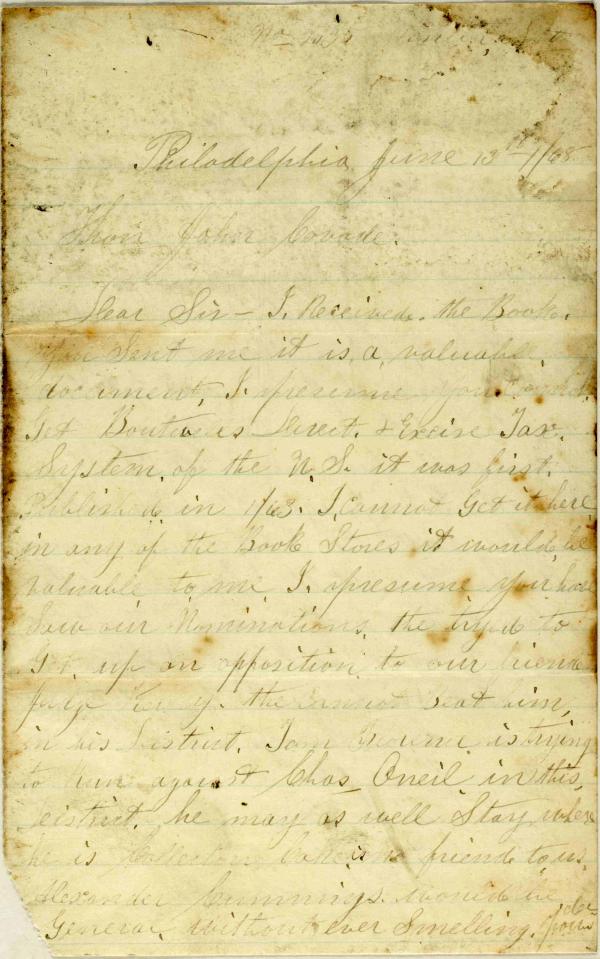 No
Philadelphia June 13th 1/68
Hon John Covode.
Dear Sir - I. Received. the Book.
you Sent me it is a, valuable.
document, I. presume you could.
Get Direct. & Excise Tax.
System. of the U.S. it was first.
Published in 1/63. I, cannot Get it here
in any of the Book Stores it would, be
valuable to me. I. presume you have
Saw our Nominations, the tryed to
Get. up an opposition. to our friend
Judge the cannot beat him,
in his District. Tom is trying
to Run against Chas Oneil in this,
district. he may as well Stay where
he is friend to us,
Alexander Cummings. would be
General, without ever Smelling. powder